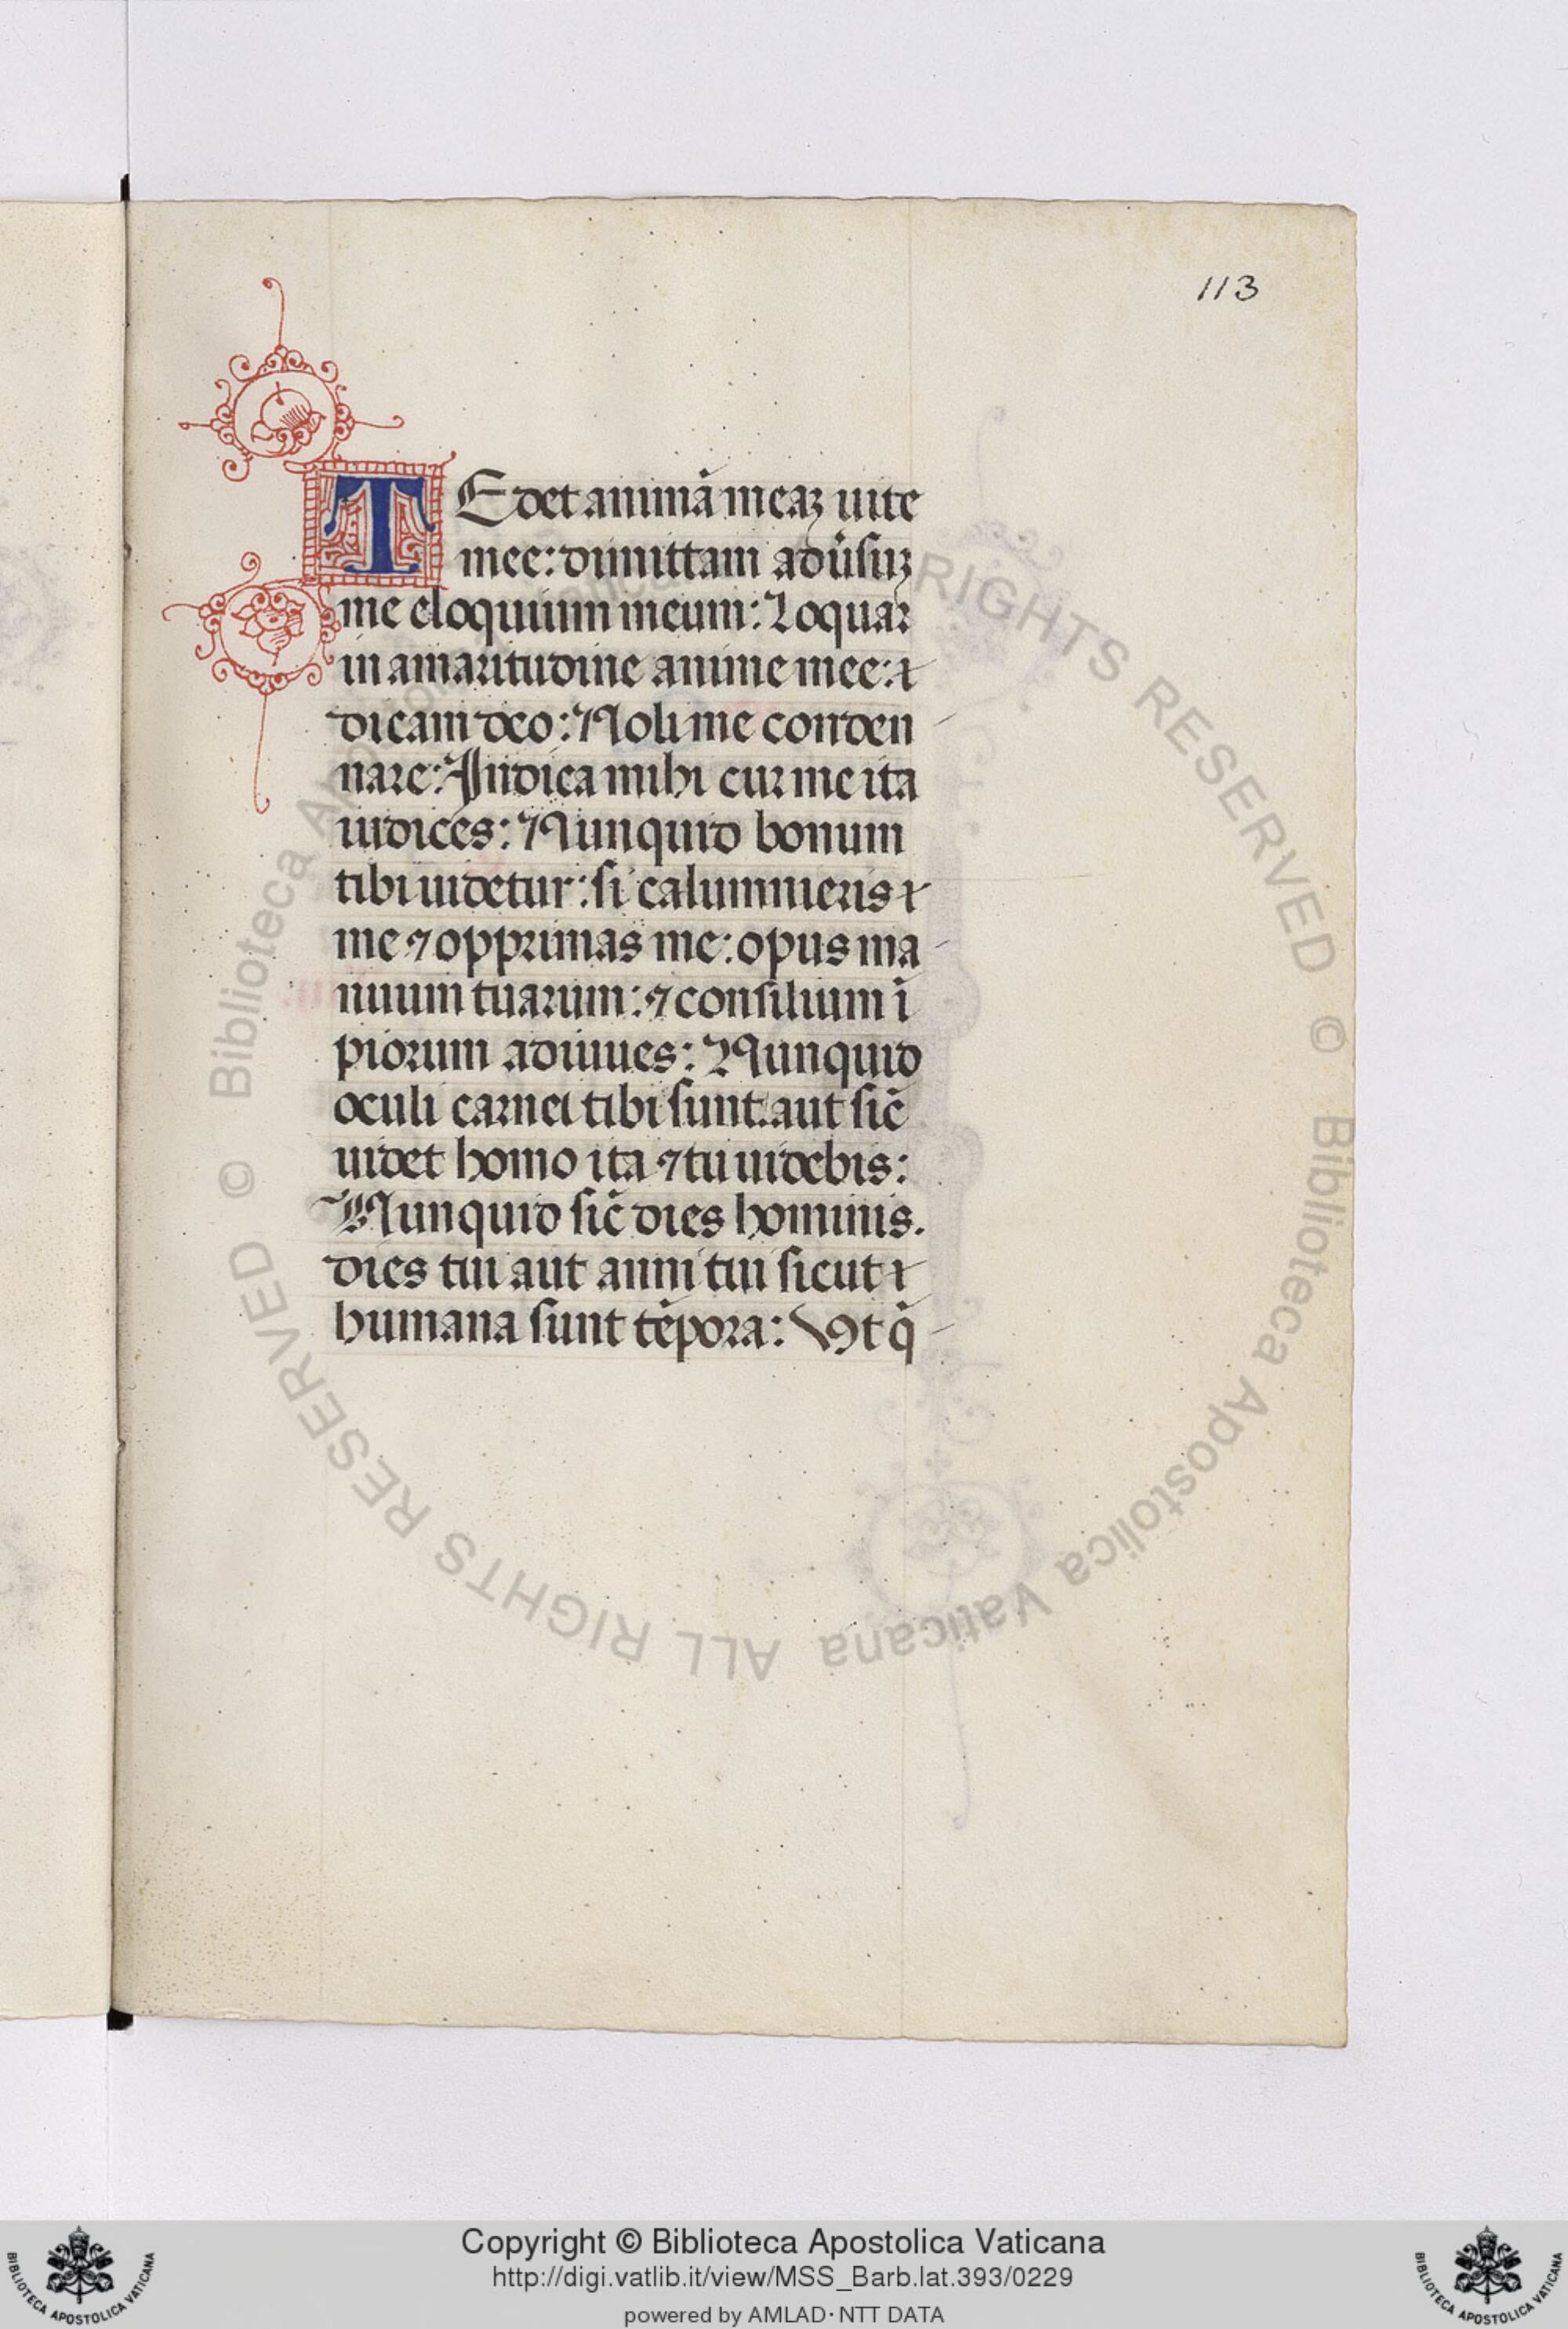 113
TEdet animã meaꝫ uite
mee: dimittam adũsuꝫ
me eloquium meum: Loquar
in amaritudine anime mee:
dicam deo: Noli me conden
nare: Indica mihi cur me ita
iudices: Nunquid bonum
tibi uidetur: si calumnieris
me ⁊ opprimas me: opus ma
nuum tuarum: ⁊ consilium ĩ
piorum adiuues: Nunquid
oculi carnei tibi sunt: aut sic̃
uidet homo ita ⁊ tu uidebis:
Nunquid sic̃ dies hominis.
dies tui aut anni tui sicut
humana sunt tẽpora: Ut q̃
© Biblioteca Apostolica Vaticana ALL RIGHTS RESERVED
© Biblioteca Apostolica Vaticana ALL RIGHTS RESERVED
Copyright © Biblioteca Apostolica Vaticana
http://digi.vatlib.it/view/MSS_Barb.lat.393/0229
powered by AMLAD·NTT DATA
BIBLIOTECA APOSTOLICA VATICANA
BIBLIOTECA APOSTOLICA VATICANA